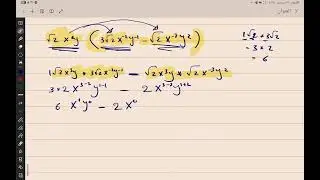 √2 x³y (3√2 x⁻²y⁻¹ − √2 x⁻³y²)
1√2 × 3√2
= 3 × 2
= 6
1√2 x³y × 3√2 x⁻²y⁻¹ − √2 x³y × √2 x⁻³y²
3×2 x³⁻²y¹⁻¹ − 2 x³⁻³y¹⁺²
6 x¹y⁰ − 2x⁰